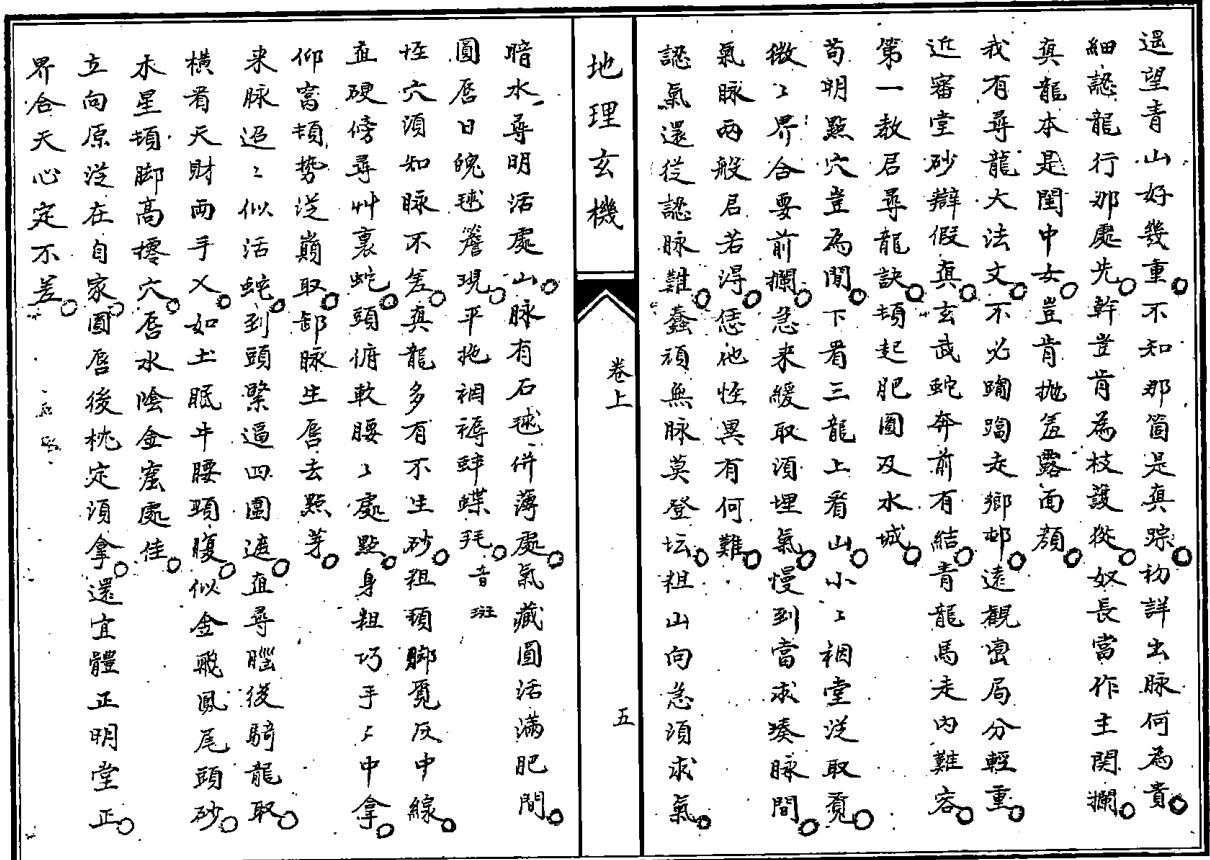 遥望青山好幾重不知那箇是真踪初詳出脉何為貴
細認龍行那處先幹豈肯為枝護從奴長當作主関攔
真龍本是閨中女豈肯抛羞露面顔
我有尋龍大法文不必躑躅走鄉邨遠觀宻局分輕重
近審堂砂辯假真玄武蛇奔前有結青龍馬走内難容
第一教君尋龍訣頓起肥圓及水城
苟明點穴豈為閒下看三龍上看山小〻裀堂从取𮗚
微〻界合要前攔急来緩取須埋氣慢到當求凑脉間
氣脉兩般君若得恁他怪異有何難
認氣還從認脉難蠢頑無脉莫登坛粗山向急須求氣
地理玄機
卷上
五
暗水尋明活處山脉有石毬併薄處氣藏圓活滿肥間
圓唇日魄毬簷現平拖裀褥蚌蝶珁音斑
怪穴須知脉不差真龍多有不生砂粗頑脚覓反中線
直硬傍尋艸裏蛇頭俯軟腰〻處點身粗巧手〻中拿
仰窩頓勢從巔取卸脉生唇去點芽
来脉迢〻似活蛇到頭緊逼四圍遮直尋腦後騎龍取
橫看天財兩手乂如土眠牛腰頭腹似金飛鳳尾頭砂
木星頓脚高撐穴唇水陰金窟處佳
立向原從在自家圓唇後枕定須拿還宜體正明堂正
界合天心定不差